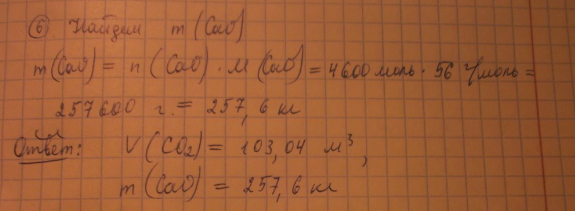 ⑥ Найдем m(CaO)
m(CaO) = n(CaO) · M(CaO) = 4600 моль · 56 г/моль =
257600 г. = 257,6 кг
Ответ: V(CO₂) = 103,04 м³,
m(CaO) = 257,6 кг